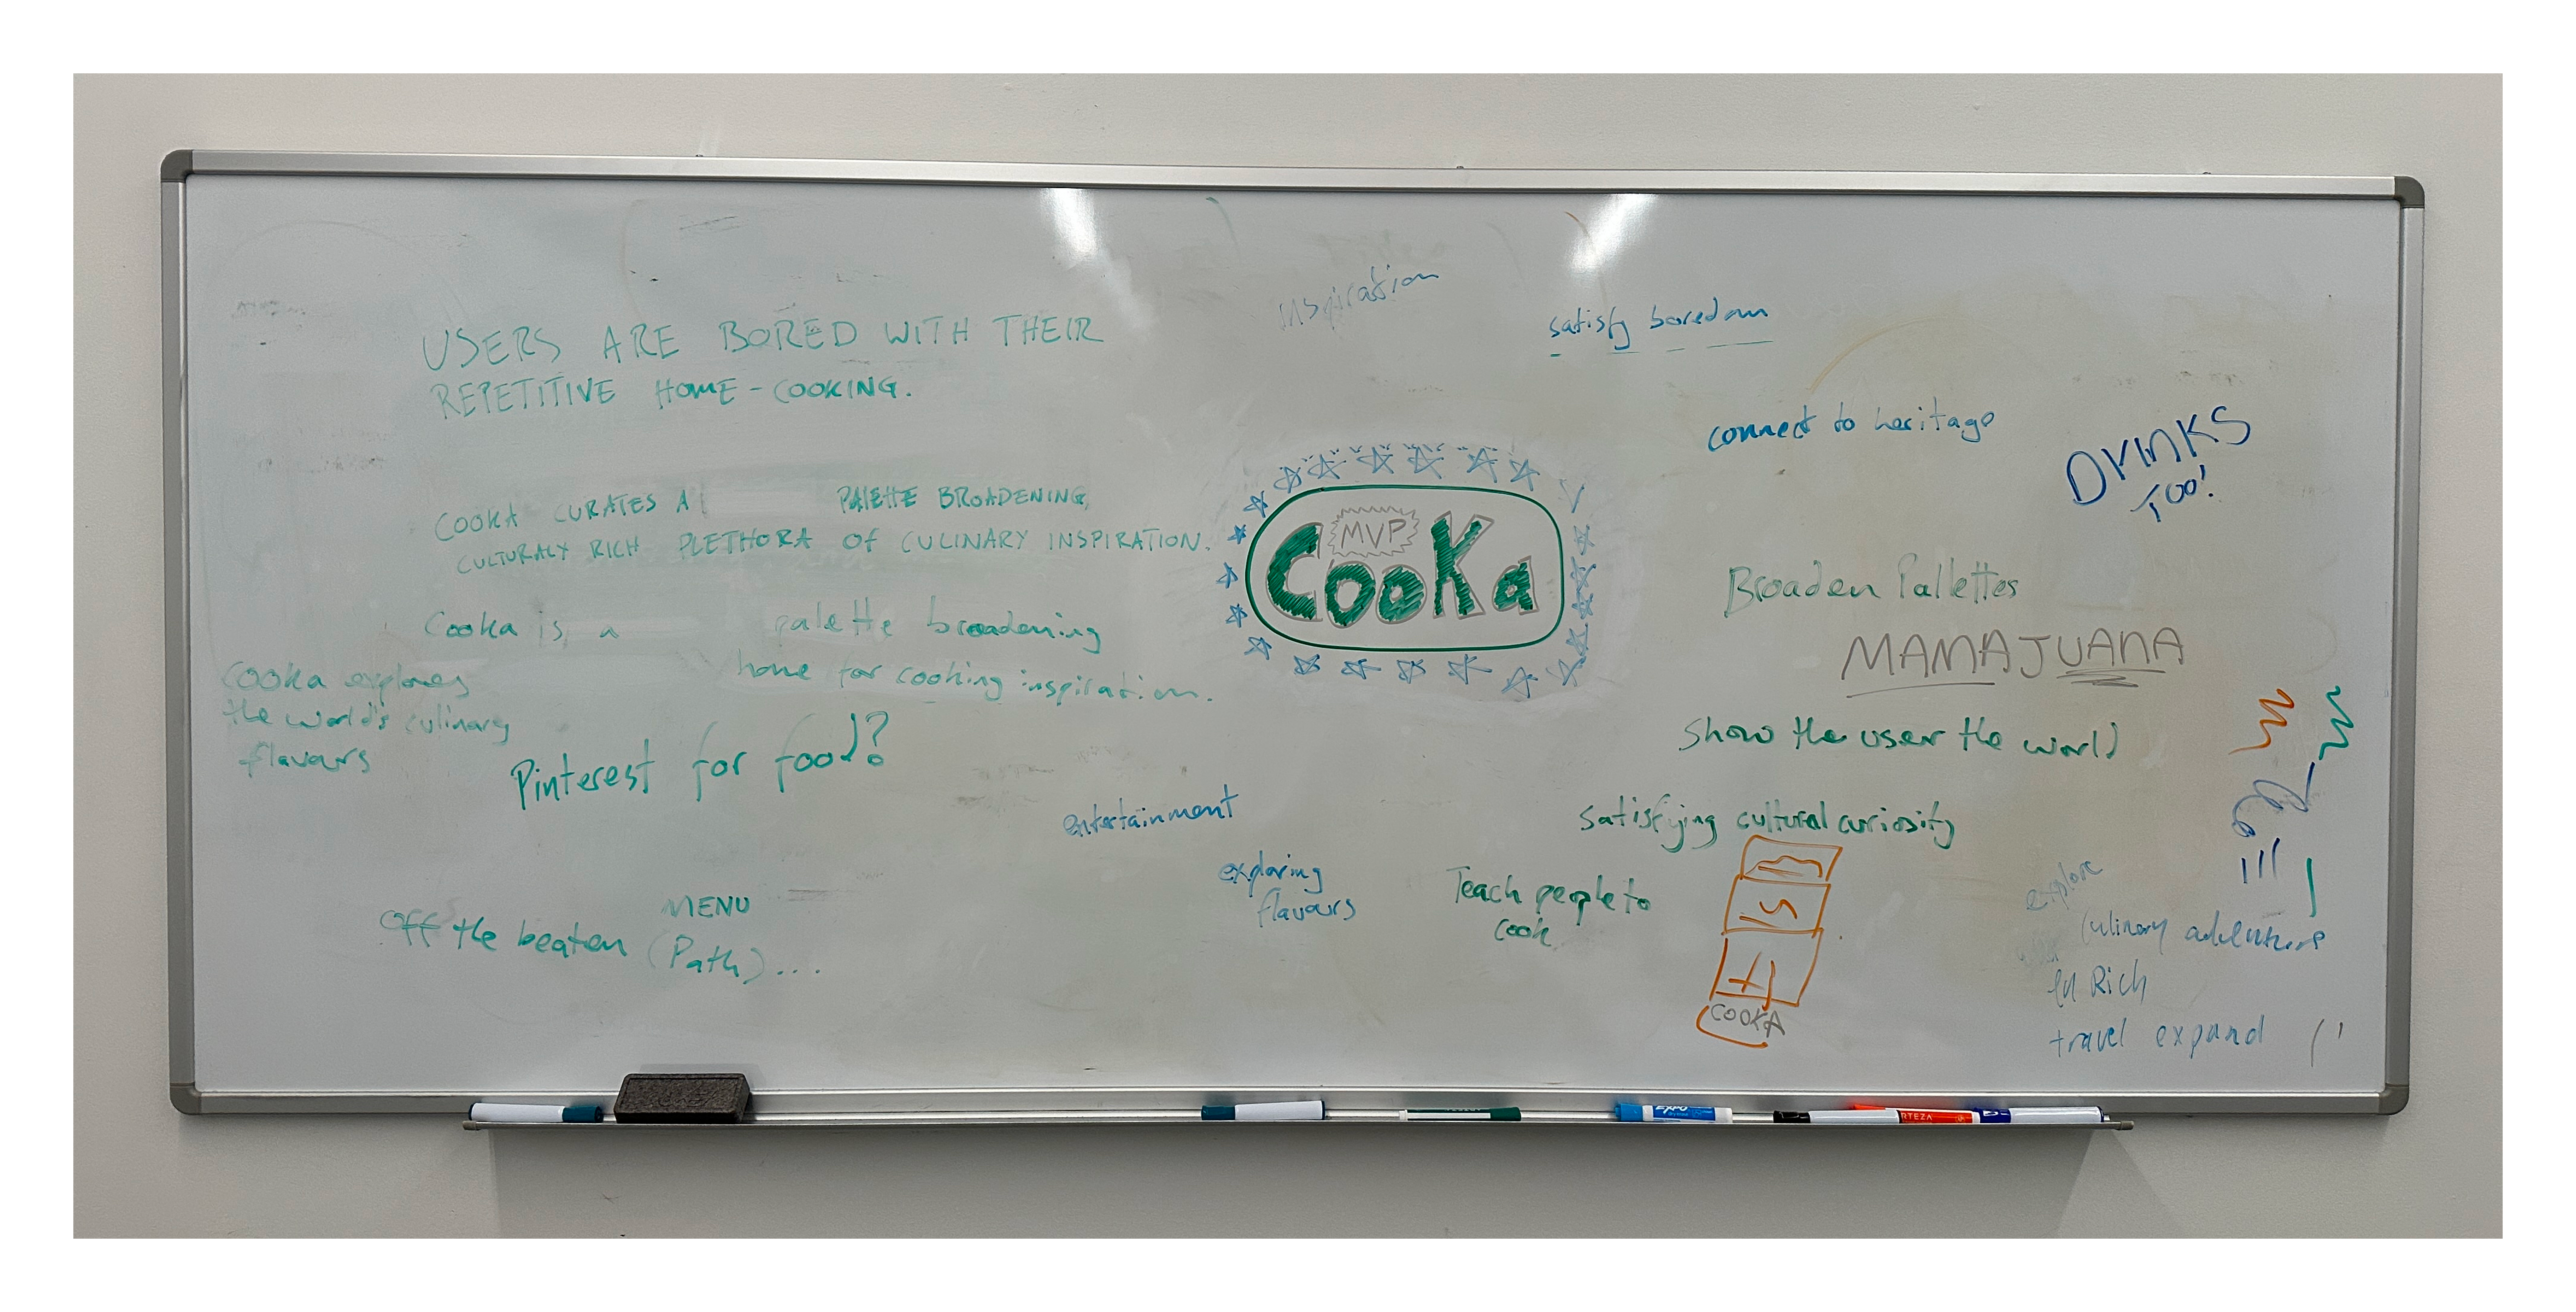 inspiration
satisfy boredom
USERS ARE BORED WITH THEIR
REPETITIVE HOME-COOKING.
connect to heritage
DRINKS
TOO!
COOKA CURATES A PALETTE BROADENING,
CULTURALY RICH PLETHORA OF CULINARY INSPIRATION.
MVP
Cooka
Broaden Pallettes
Cooka is a palette broadening
home for cooking inspiration.
MAMAJUANA
Cooka explores
the world's culinary
flavours
Pinterest for food?
show the user the world
entertainment
satisfying cultural curiosity
exploring
flavours
Teach people to
cook
MENU
Off the beaten (Path)...
COOKA
explore
culinary adventure
Rich
travel expand
EXPO
RTEZA